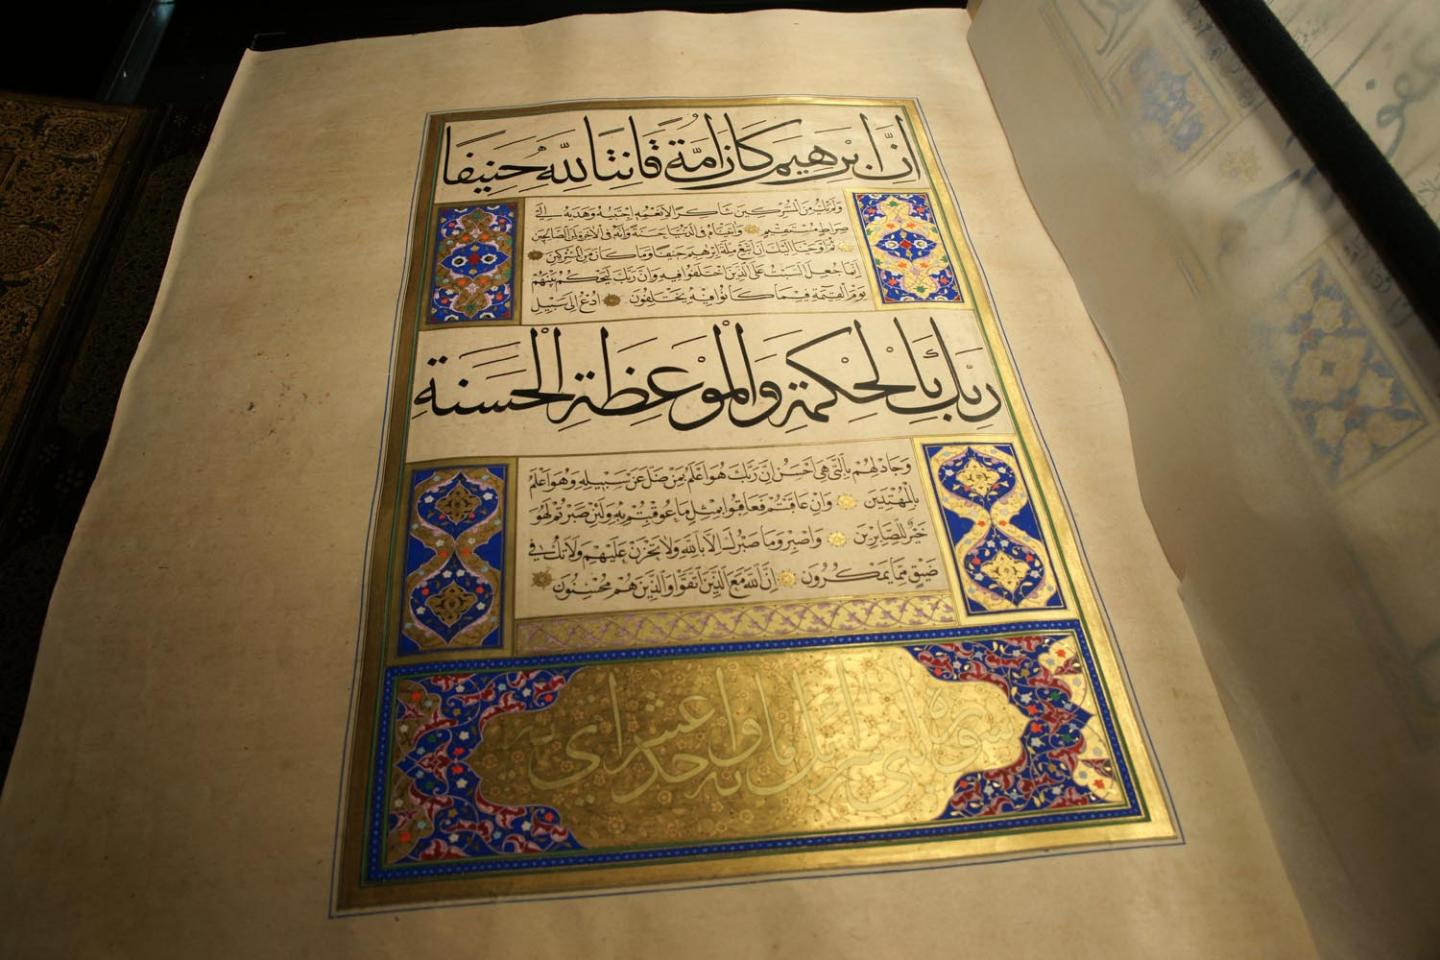 إن إبرهيم كان أمة قانتا لله حنيفا
ولم يك من المشركين شاكرا لأنعمه اجتبيه وهديه إلى
صراط مستقيم وآتيناه في الدنيا حسنة وإنه في الآخرة لمن الصالحين
ثم أوحينا إليك أن اتبع ملة إبرهيم حنيفا وما كان من المشركين
إنما جعل السبت على الذين اختلفوا فيه وإن ربك ليحكم بينهم
يوم القيمة فيما كانوا فيه يختلفون ادع إلى سبيل
ربك بالحكمة والموعظة الحسنة
وجادلهم بالتي هي أحسن إن ربك هو أعلم بمن ضل عن سبيله وهو أعلم
بالمهتدين وإن عاقبتم فعاقبوا بمثل ما عوقبتم به ولئن صبرتم لهو
خير للصابرين واصبر وما صبرك إلا بالله ولا تحزن عليهم ولا تك في
ضيق مما يمكرون إن الله مع الذين اتقوا والذين هم محسنون
سورة بني إسرائيل